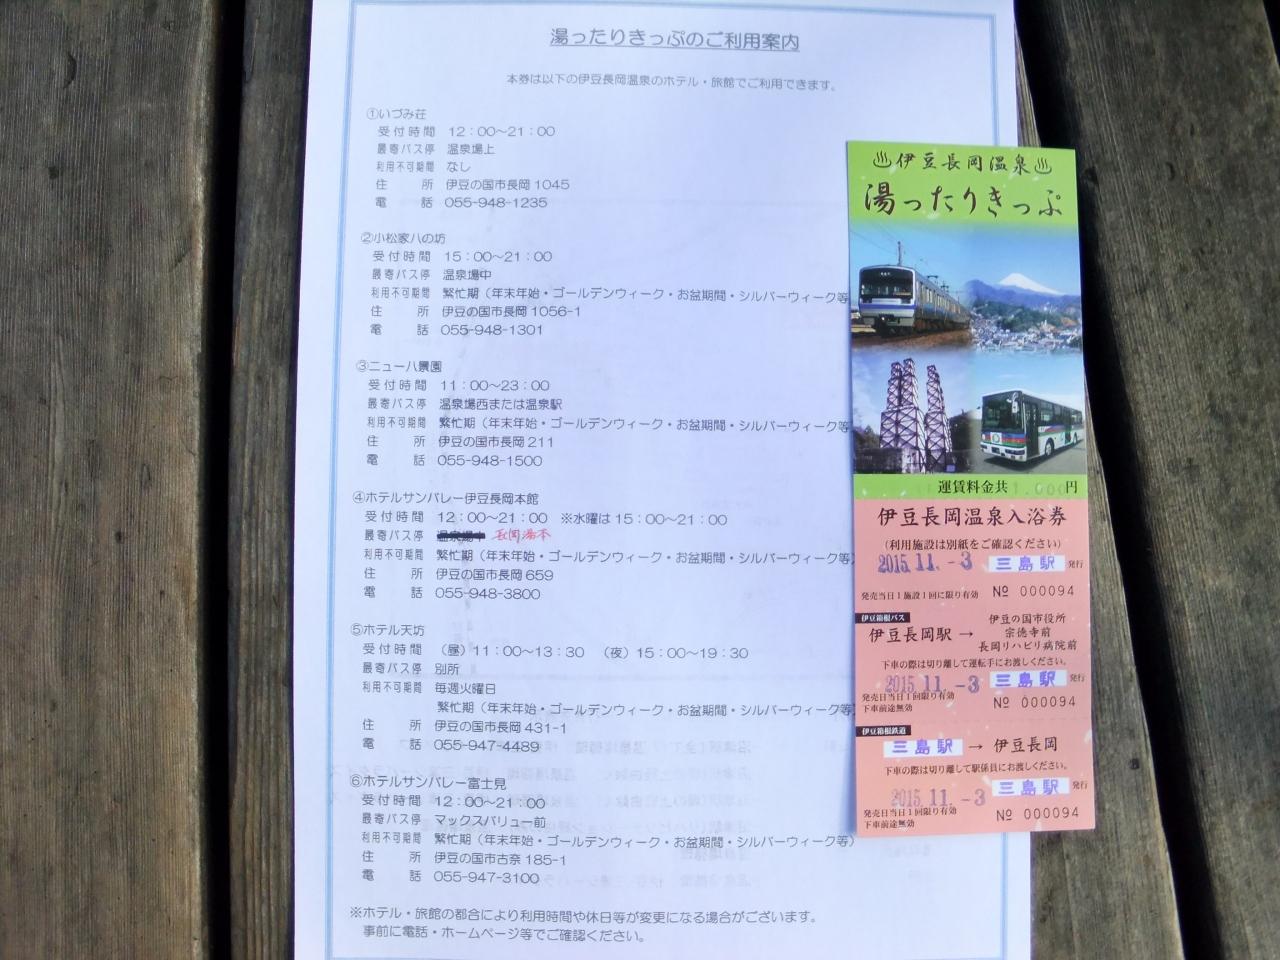 湯ったりきっぷのご利用案内
本券は以下の伊豆長岡温泉のホテル・旅館でご利用できます。
①いづみ荘
受付時間 12：00～21：00
最寄バス停 温泉場上
利用不可期間 なし
住所 伊豆の国市長岡 1045
電話 055-948-1235
②小松家八の坊
受付時間 15：00～21：00
最寄バス停 温泉場中
利用不可期間 繁忙期（年末年始・ゴールデンウィーク・お盆期間・シルバーウィーク等
住所 伊豆の国市長岡 1056-1
電話 055-948-1301
③ニュー八景園
受付時間 11：00～23：00
最寄バス停 温泉場西または温泉駅
利用不可期間 繁忙期（年末年始・ゴールデンウィーク・お盆期間・シルバーウィーク等
住所 伊豆の国市長岡 211
電話 055-948-1500
④ホテルサンバレー伊豆長岡本館
受付時間 12：00～21：00 ※水曜は 15：00～21：00
最寄バス停 温泉場中 長岡湯本
利用不可期間 繁忙期（年末年始・ゴールデンウィーク・お盆期間・シルバーウィーク等）
住所 伊豆の国市長岡 659
電話 055-948-3800
⑤ホテル天坊
受付時間 （昼）11：00～13：30 （夜）15：00～19：30
最寄バス停 別所
利用不可期間 毎週火曜日
繁忙期（年末年始・ゴールデンウィーク・お盆期間・シルバーウィーク等）
住所 伊豆の国市長岡 431-1
電話 055-947-4489
⑥ホテルサンバレー富士見
受付時間 12：00～21：00
最寄バス停 マックスバリュー前
利用不可期間 繁忙期（年末年始・ゴールデンウィーク・お盆期間・シルバーウィーク等）
住所 伊豆の国市古奈 185-1
電話 055-947-3100
※ホテル・旅館の都合により利用時間や休日等が変更になる場合がございます。
事前に電話・ホームページ等でご確認ください。
♨伊豆長岡温泉♨
湯ったりきっぷ
運賃料金共 1,000円
伊豆長岡温泉入浴券
（利用施設は別紙をご確認ください）
2015.11.-3 三島駅 発行
発売当日1施設1回に限り有効 № 000094
伊豆箱根バス
伊豆長岡駅 → 伊豆の国市役所
宗徳寺前
長岡リハビリ病院前
下車の際は切り離して運転手にお渡しください。
2015.11.-3 三島駅 発行
発売日当日1回限り有効
下車前途無効 № 000094
伊豆箱根鉄道
三島駅 → 伊豆長岡
下車の際は切り離して駅係員にお渡しください。
2015.11.-3 三島駅 発行
発売日当日1回限り有効
下車前途無効 № 000094